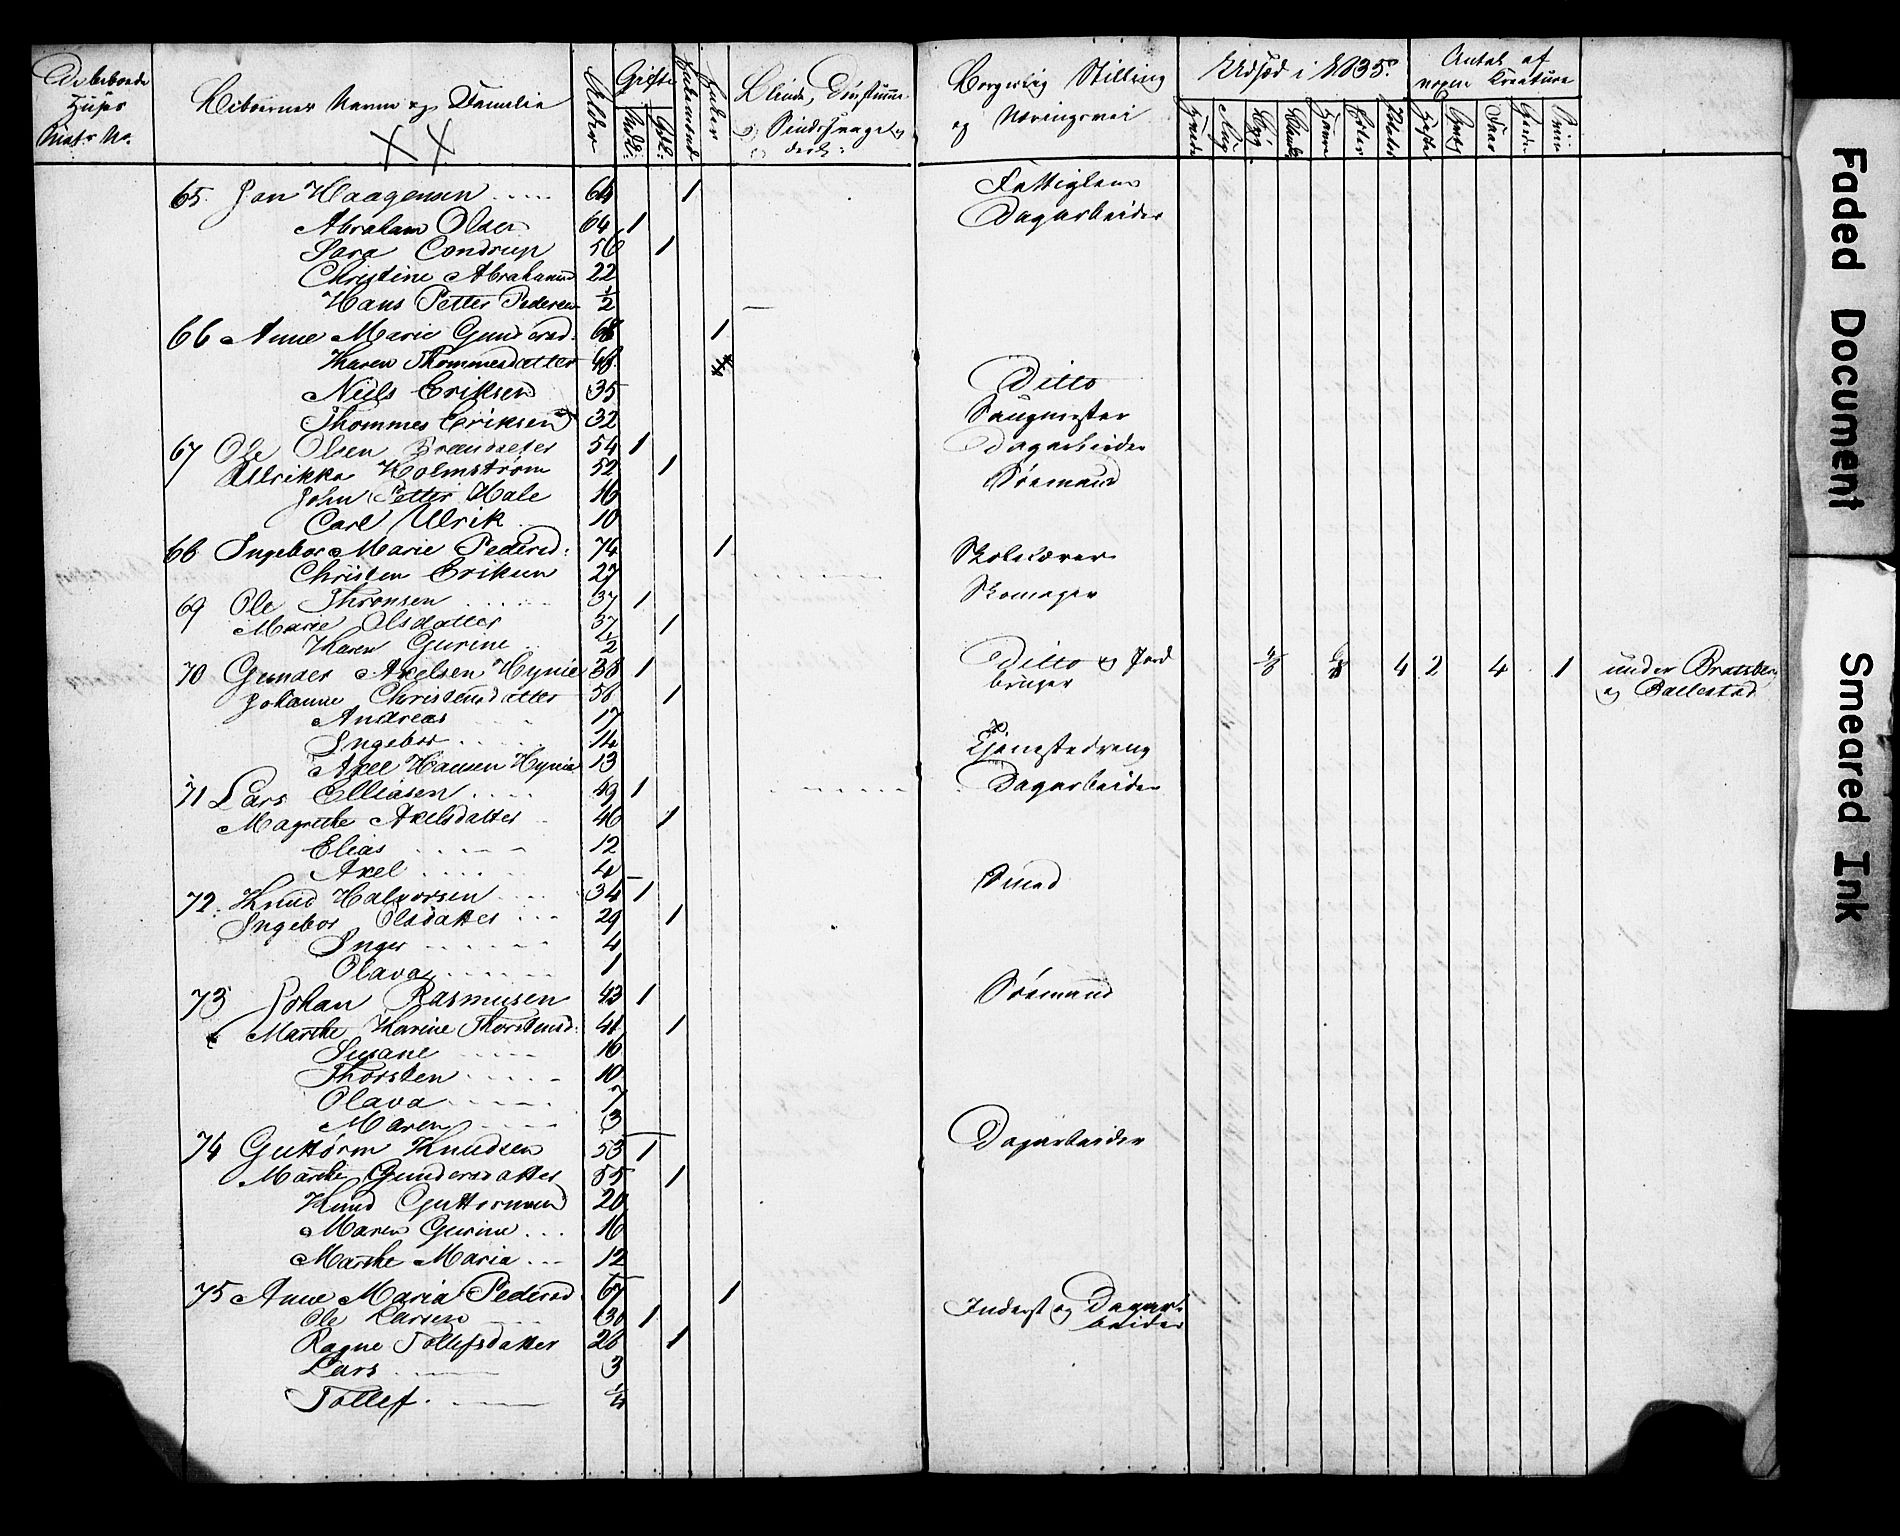 De beboede Huses Matr: No.
Beboernes Navne og Familie
Alder
Gifte
Mdk: Qvk:
Enkemænd
Enker
Blinde, Døvstumme og Sindssvage
Borgerlig Stilling og Næringsvei
Udsæd i 1835.
Hvede Rug Byg Havre Erter Poteter
Antal af nogen Kreature
Heste Faar Geder Sviin
65. Jan Haagensen 64 1 Fattiglem
Abraham Olsen 64 1 Dagarbeider
Sara Condrup 56 1
Christine Abrahamsd 22
Hans Petter Pedersen 1/2
66 Anne Marie Gundersd. 68 1
Karen Thommesdatter 48
Niels Eriksen 35 Ditto
Thommes Eriksen 32 Saugmester
67 Ole Olsen 54 1 Dagarbeider
Ulrikke Holmstrøm 52 1 Søemand
John Petter Hale 16
Carl Ulrik 10
68 Ingebor Marie Pedersd: 74 1 Skolelærer
Christen Eriksen 27 Skomager
69 Ole Thronsen 37 1
Marie Olsdatter 37 1
Karen Gurine 1/2
70 Gunder Axelsen Hynie 38 1 Ditto og Jordbruger 4 2 4 1 under Bratsber og Ballestad
Johanne Christensdatter 1
Andreas 17
Ingebor 14
Axel Hansen Hynie 13 Tjenestedreng
71 Lars Elliasen 49 1 Dagarbeider
Magrethe Axelsdatter 46 1
Elias 12
Axel 4
72. Knud Halvorsen 34 1 Smed
Ingebor Olsdatter 29 1
Inger 4
Olava 1
73 Johan Rasmusen 43 1 Søemand
Marthe Karine Thorstensd: 41 1
Susane 16
Thorsten 10
Olava 7
Maren 3
74 Guttorm Knudsen 53 1 Dagarbeider
Marthe Gundersdatter 55 1
Knud Guttormsen 20
Maren Gurine 16
Marthe Maria 12
75 Anne Maria Pedersd. 67 1
Ole Larsen 30 1 Inderst og Dagarbeider
Ragne Tollefsdatter 26 1
Lars 3
Tollef 1/4
Faded Document
Smeared Ink